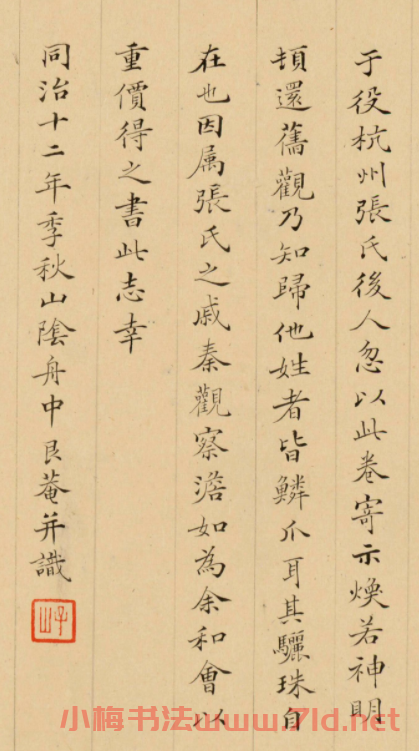 于役杭州張氏後人忽以此卷寄示煥若神明
頓還舊觀乃知歸他姓者皆鱗爪耳其驪珠自
在也因属張氏之戚秦觀察澹如為余和會以
重價得之書此志幸
同治十二年季秋山陰舟中艮菴并識
子山
小梅书法www.7ld.net